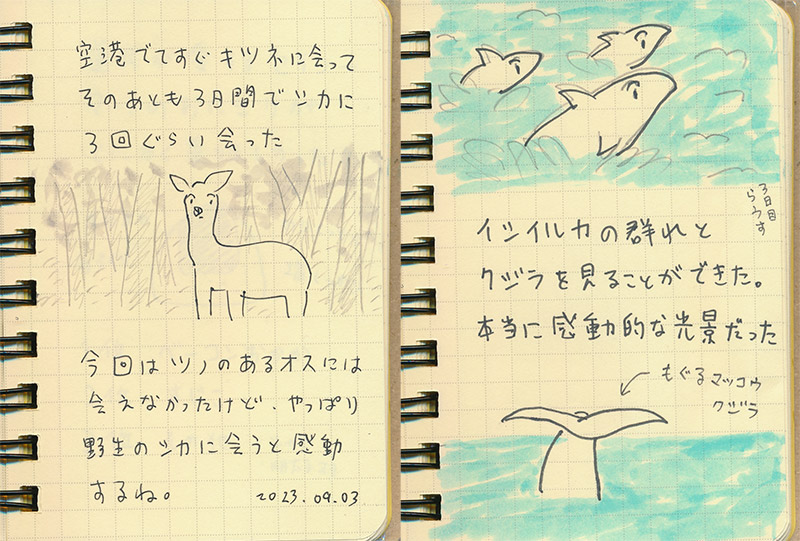 空港でてすぐキツネに会って
そのあとも3日間でシカに
3回ぐらい会った
今回はツノのあるオスには
会えなかったけど、やっぱり
野生のシカに会うと感動
するね。 2023.09.03
3日目
らうす
イシイルカの群れと
クジラを見ることができた。
本当に感動的な光景だった
もぐるマッコウ
クジラ